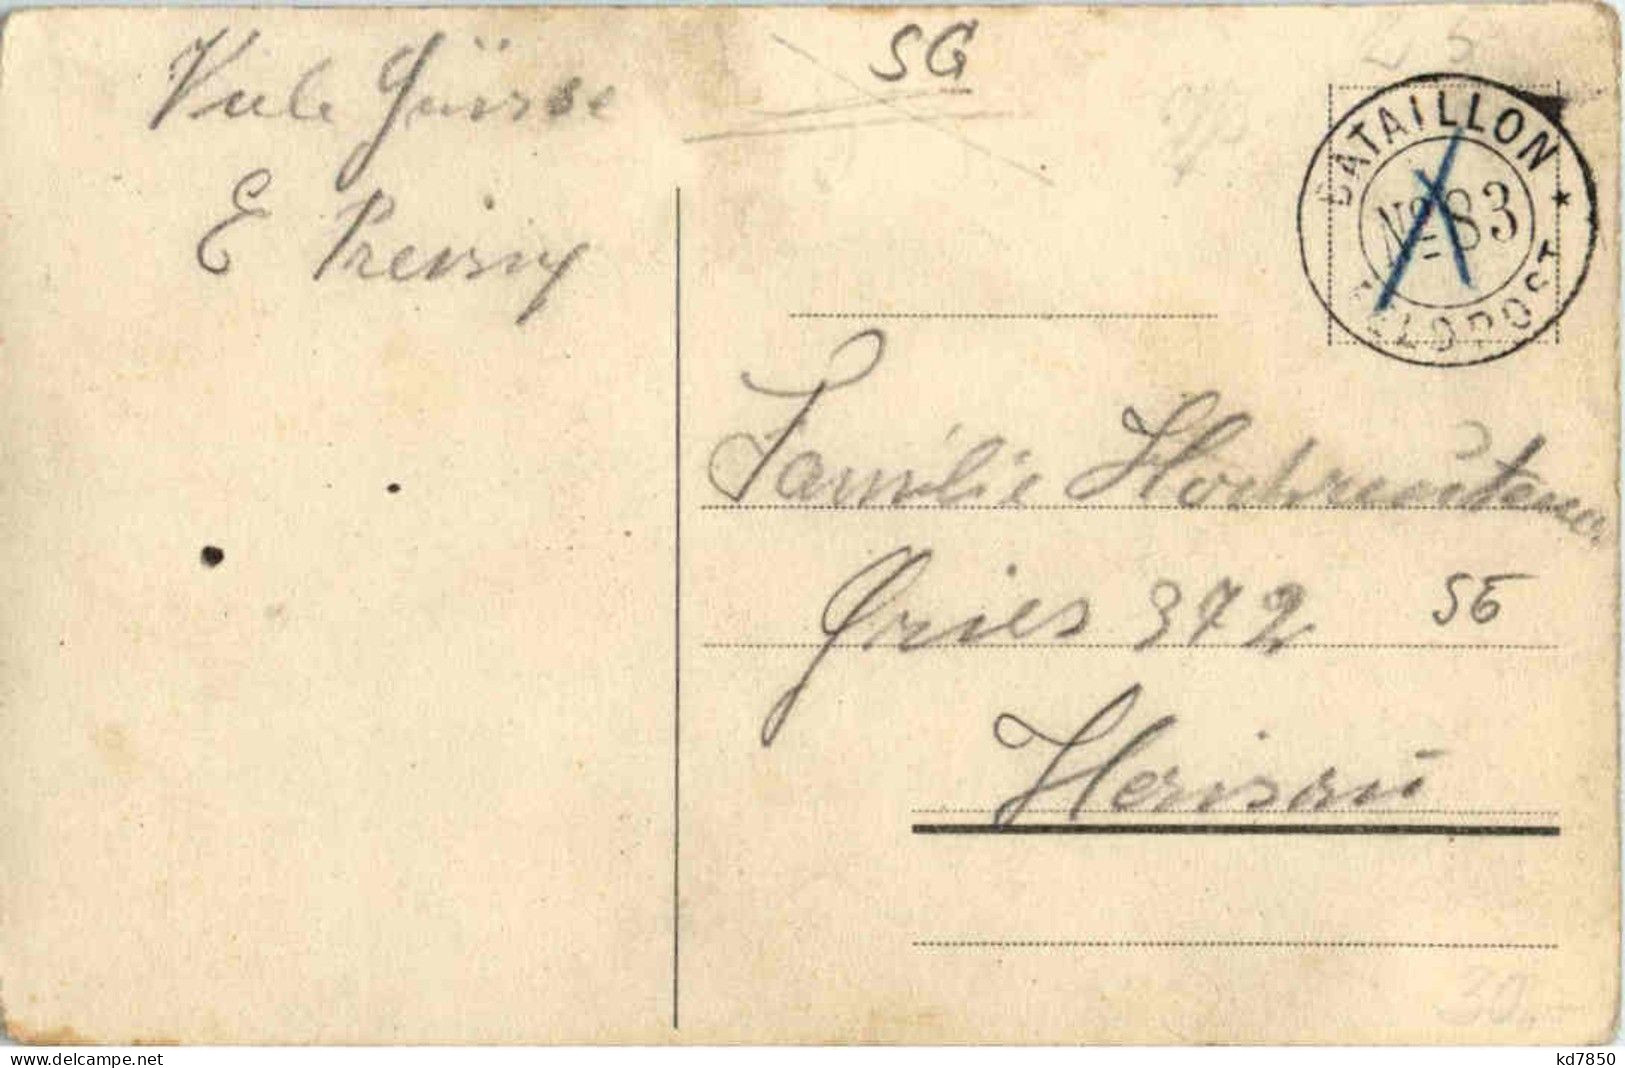 Viele Grüsse
E Preisig
SG
BATAILLON
No 83
FELDPOST
Familie Hochreutener
Gries 372
SE
Herisau
30.-
delcampe.net
kd7850